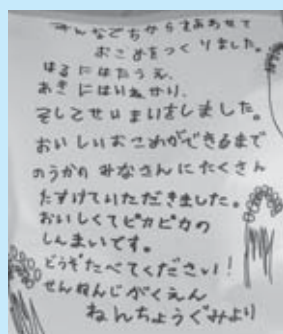 みんなでちからをあわせて
おこめをつくりました。
はるにはたうえ、
あきにはいねかり、
そしてせいまいをしました。
おいしいおこめができるまで
のうかのみなさんにたくさん
たすけていただきました。
おいしくてピカピカの
しんまいです。
どうぞたべてください！
せんねんじがくえん
ねんちょうぐみより